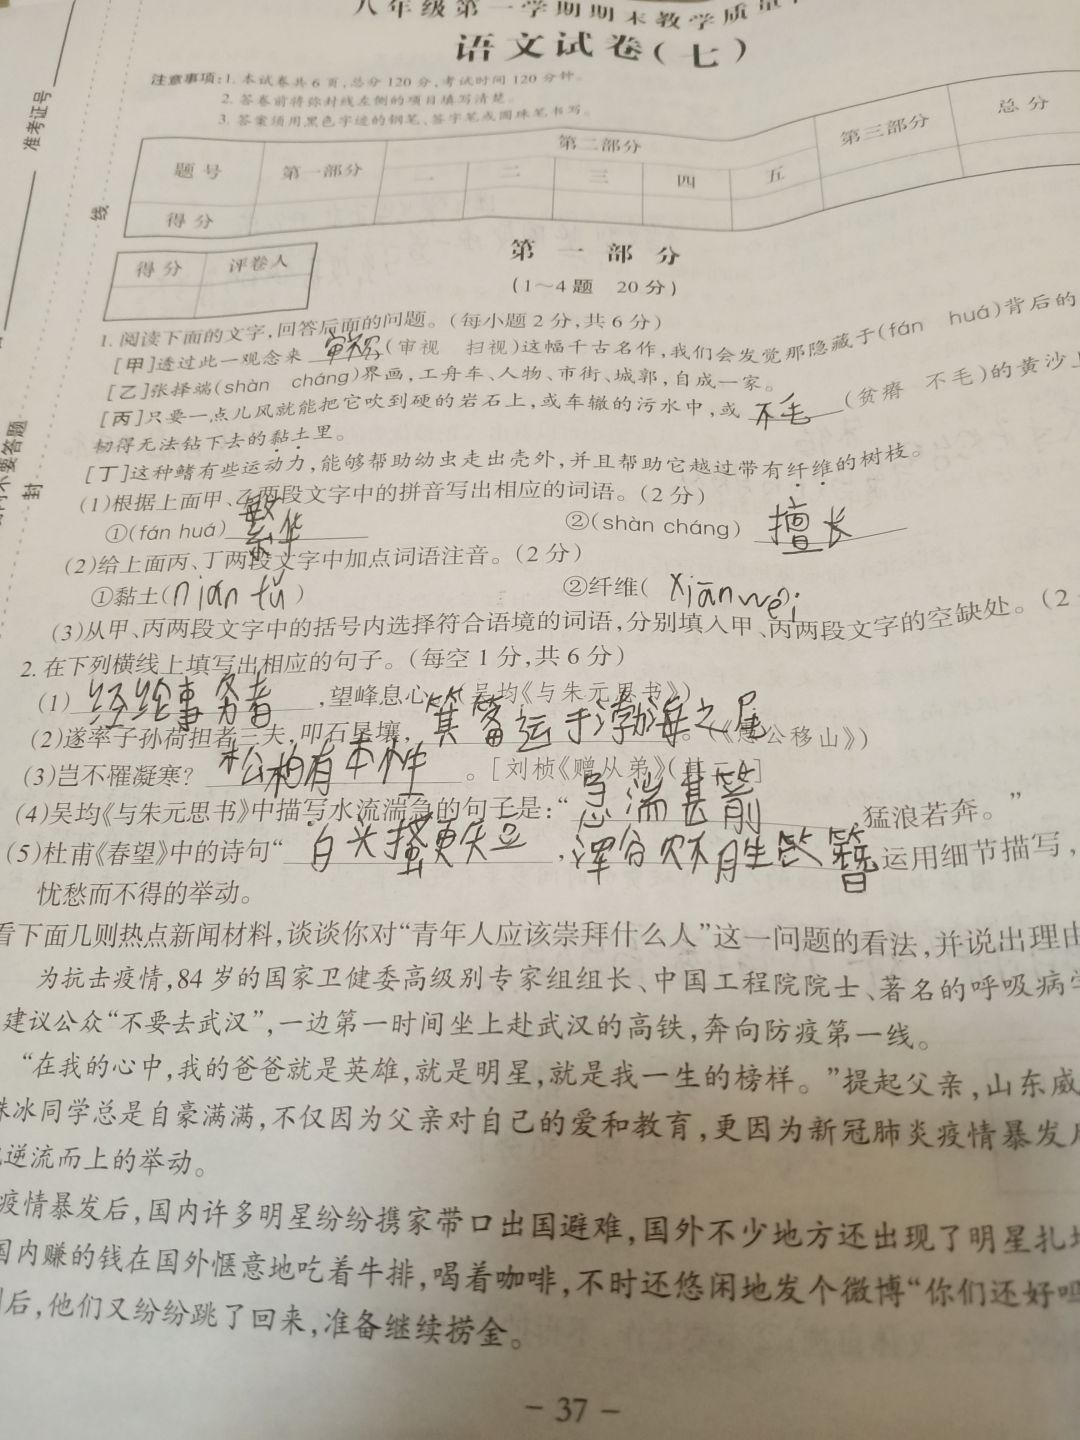 八年级第一学期期末教学质量
语文试卷(七)
注意事项:1. 本试卷共6页,总分120分,考试时间120分钟。
2. 答卷前将弥封线左侧的项目填写清楚。
3. 答案须用黑色字迹的钢笔、签字笔或圆珠笔书写。
准考证号
线
题号 第一部分 第二部分 第三部分 总分
一 二 三 四 五
得分
得分 评卷人
第一部分
(1~4题 20分)
1. 阅读下面的文字,回答后面的问题。(每小题2分,共6分)
[甲]透过此一观念来 审视 (审视 扫视)这幅千古名作,我们会发觉那隐藏于(fán huá)背后的
[乙]张择端(shàn cháng)界画,工舟车、人物、市街、城郭,自成一家。
[丙]只要一点儿风就能把它吹到硬的岩石上,或车辙的污水中,或 不毛 (贫瘠 不毛)的黄沙上
韧得无法钻下去的黏土里。
[丁]这种鳍有些运动力,能够帮助幼虫走出壳外,并且帮助它越过带有纤维的树枝。
(1)根据上面甲、乙两段文字中的拼音写出相应的词语。(2分)
①(fán huá) 繁华 ②(shàn cháng) 擅长
(2)给上面丙、丁两段文字中加点词语注音。(2分)
①黏土(nián tǔ) ②纤维( xiān wéi
(3)从甲、丙两段文字中的括号内选择符合语境的词语,分别填入甲、丙两段文字的空缺处。(2
要答题
封
2. 在下列横线上填写出相应的句子。(每空1分,共6分)
(1) 经纶事务者 ,望峰息心。(吴均《与朱元思书》)
(2)遂率子孙荷担者三夫,叩石垦壤, 箕畚运于渤海之尾 。(《愚公移山》)
(3)岂不罹凝寒? 松柏有本性 。[刘桢《赠从弟》(其二)]
(4)吴均《与朱元思书》中描写水流湍急的句子是:“ 急湍甚箭 ,猛浪若奔。”
(5)杜甫《春望》中的诗句“ 白头搔更短 , 浑欲不胜簪 运用细节描写,
忧愁而不得的举动。
看下面几则热点新闻材料,谈谈你对“青年人应该崇拜什么人”这一问题的看法,并说出理由
为抗击疫情,84岁的国家卫健委高级别专家组组长、中国工程院院士、著名的呼吸病学
建议公众“不要去武汉”,一边第一时间坐上赴武汉的高铁,奔向防疫第一线。
“在我的心中,我的爸爸就是英雄,就是明星,就是我一生的榜样。”提起父亲,山东威
冰同学总是自豪满满,不仅因为父亲对自己的爱和教育,更因为新冠肺炎疫情暴发后
逆流而上的举动。
疫情暴发后,国内许多明星纷纷携家带口出国避难,国外不少地方还出现了明星扎堆
国内赚的钱在国外惬意地吃着牛排,喝着咖啡,不时还悠闲地发个微博“你们还好吗
后,他们又纷纷跳了回来,准备继续捞金。
- 37 -